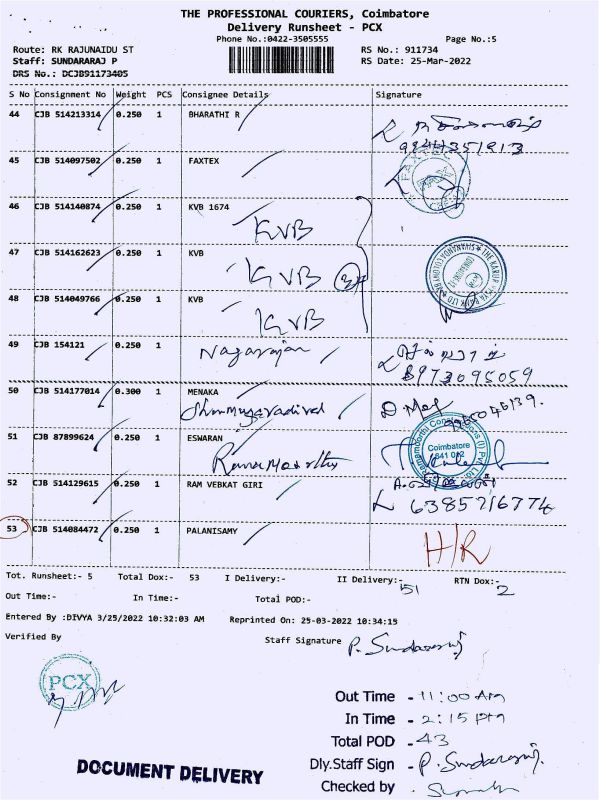 THE PROFESSIONAL COURIERS, Coimbatore
Delivery Runsheet - PCX
Phone No.:0422-3505555
Page No.:5
Route: RK RAJUNAIDU ST
RS No.: 911734
Staff: SUNDARARAJ P
RS Date: 25-Mar-2022
DRS No.: DCJB91173405
S No Consignment No Weight PCS Consignee Details Signature
44 CJB 514213314 0.250 1 BHARATHI R
9944351913
45 CJB 514097502 0.250 1 FAXTEX
46 CJB 514140874 0.250 1 KVB 1674
KVB
47 CJB 514162623 0.250 1 KVB
KVB
48 CJB 514049766 0.250 1 KVB
KVB
49 CJB 154121 0.250 1 Nagarajan
8973095059
50 CJB 514177014 0.300 1 MENAKA
Shanmugavadivel
51 CJB 87899624 0.250 1 ESWARAN
Coimbatore
641 012
52 CJB 514129615 0.250 1 RAM VEBKAT GIRI
6385716774
53 CJB 514084472 0.250 1 PALANISAMY
H/R
Tot. Runsheet:- 5 Total Dox:- 53 I Delivery:- II Delivery:- 51 RTN Dox:- 2
Out Time:- In Time:- Total POD:-
Entered By :DIVYA 3/25/2022 10:32:03 AM Reprinted On: 25-03-2022 10:34:15
Verified By Staff Signature P. Sundararaj
PCX
Out Time - 11:00 Am
In Time - 2:15 Pm
Total POD - 43
Dly.Staff Sign - P. Sundararaj
Checked by -
DOCUMENT DELIVERY